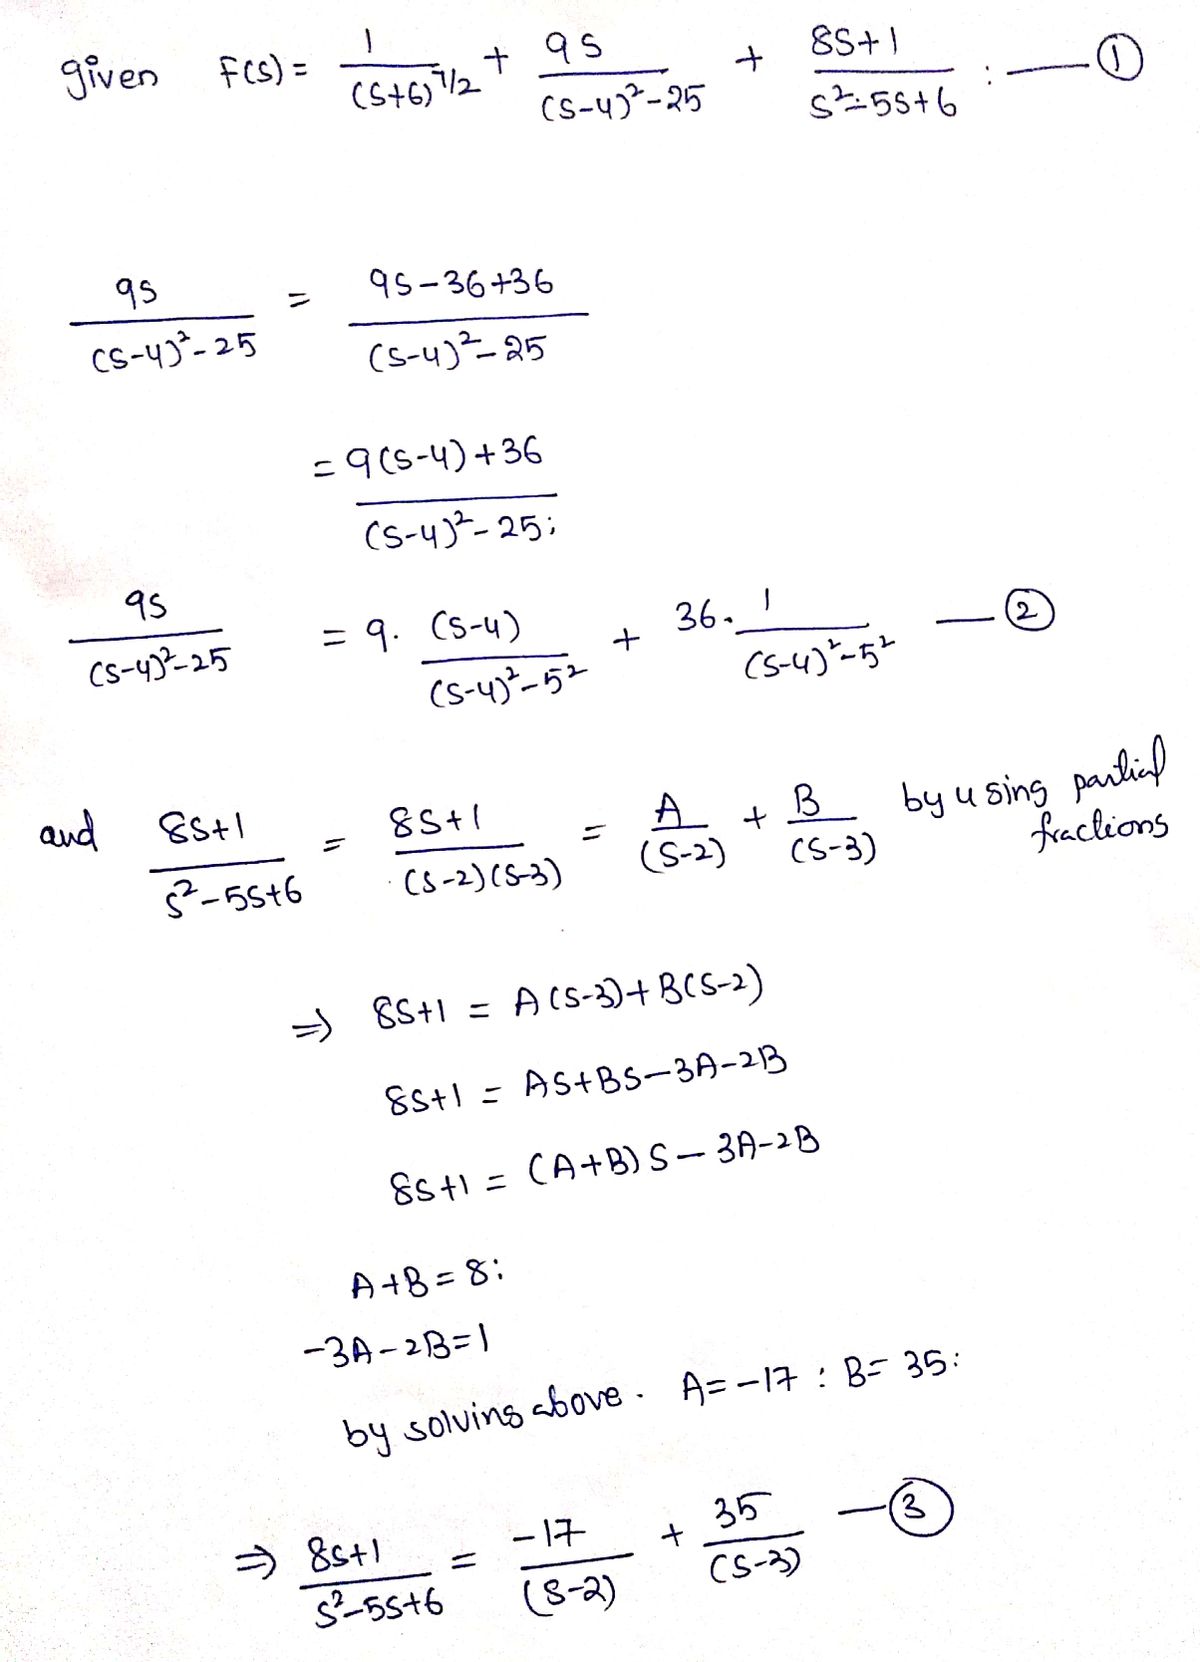 given F(s) = 1/(s+6)^7/2 + 9s/(s-4)²-25 + 8s+1/s²-5s+6 : — ①
9s/(s-4)²-25 = 9s-36+36/(s-4)²-25
= 9(s-4)+36/(s-4)²-25;
9s/(s-4)²-25 = 9. (s-4)/(s-4)²-5² + 36. 1/(s-4)²-5² — ②
and 8s+1/s²-5s+6 = 8s+1/(s-2)(s-3) = A/(s-2) + B/(s-3) by using partial fractions
⇒ 8s+1 = A(s-3)+B(s-2)
8s+1 = As+Bs-3A-2B
8s+1 = (A+B)s-3A-2B
A+B=8:
-3A-2B=1
by solving above. A=-17 : B= 35:
⇒ 8s+1/s²-5s+6 = -17/(s-2) + 35/(s-3) — ③